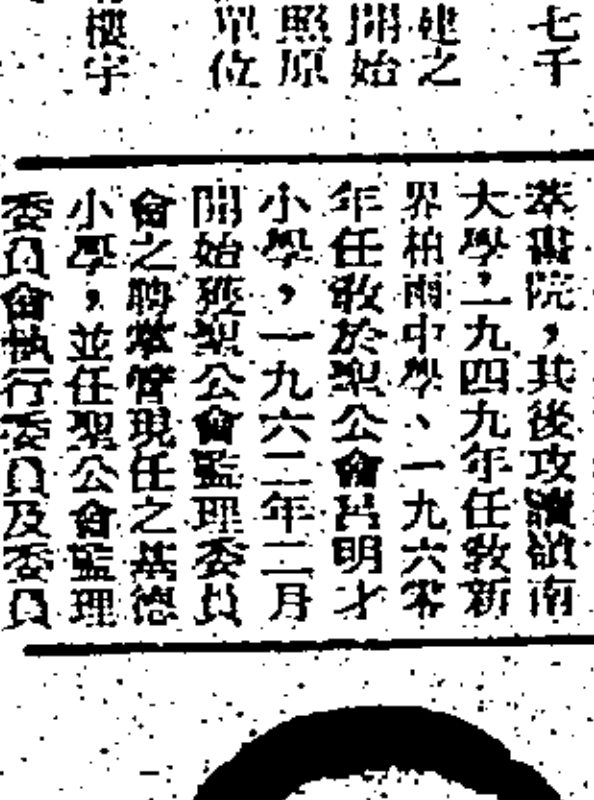 七千
建之
開始
照原
單位
樓宇
萃書院，其後攻讀嶺南
大學，一九四九年任敎新
界柏雨中學、一九六零
年任敎於聖公會呂明才
小學，一九六二年二月
開始獲聖公會監理委員
會之聘掌管現任之基德
小學，並任聖公會監理
委員會執行委員及委員